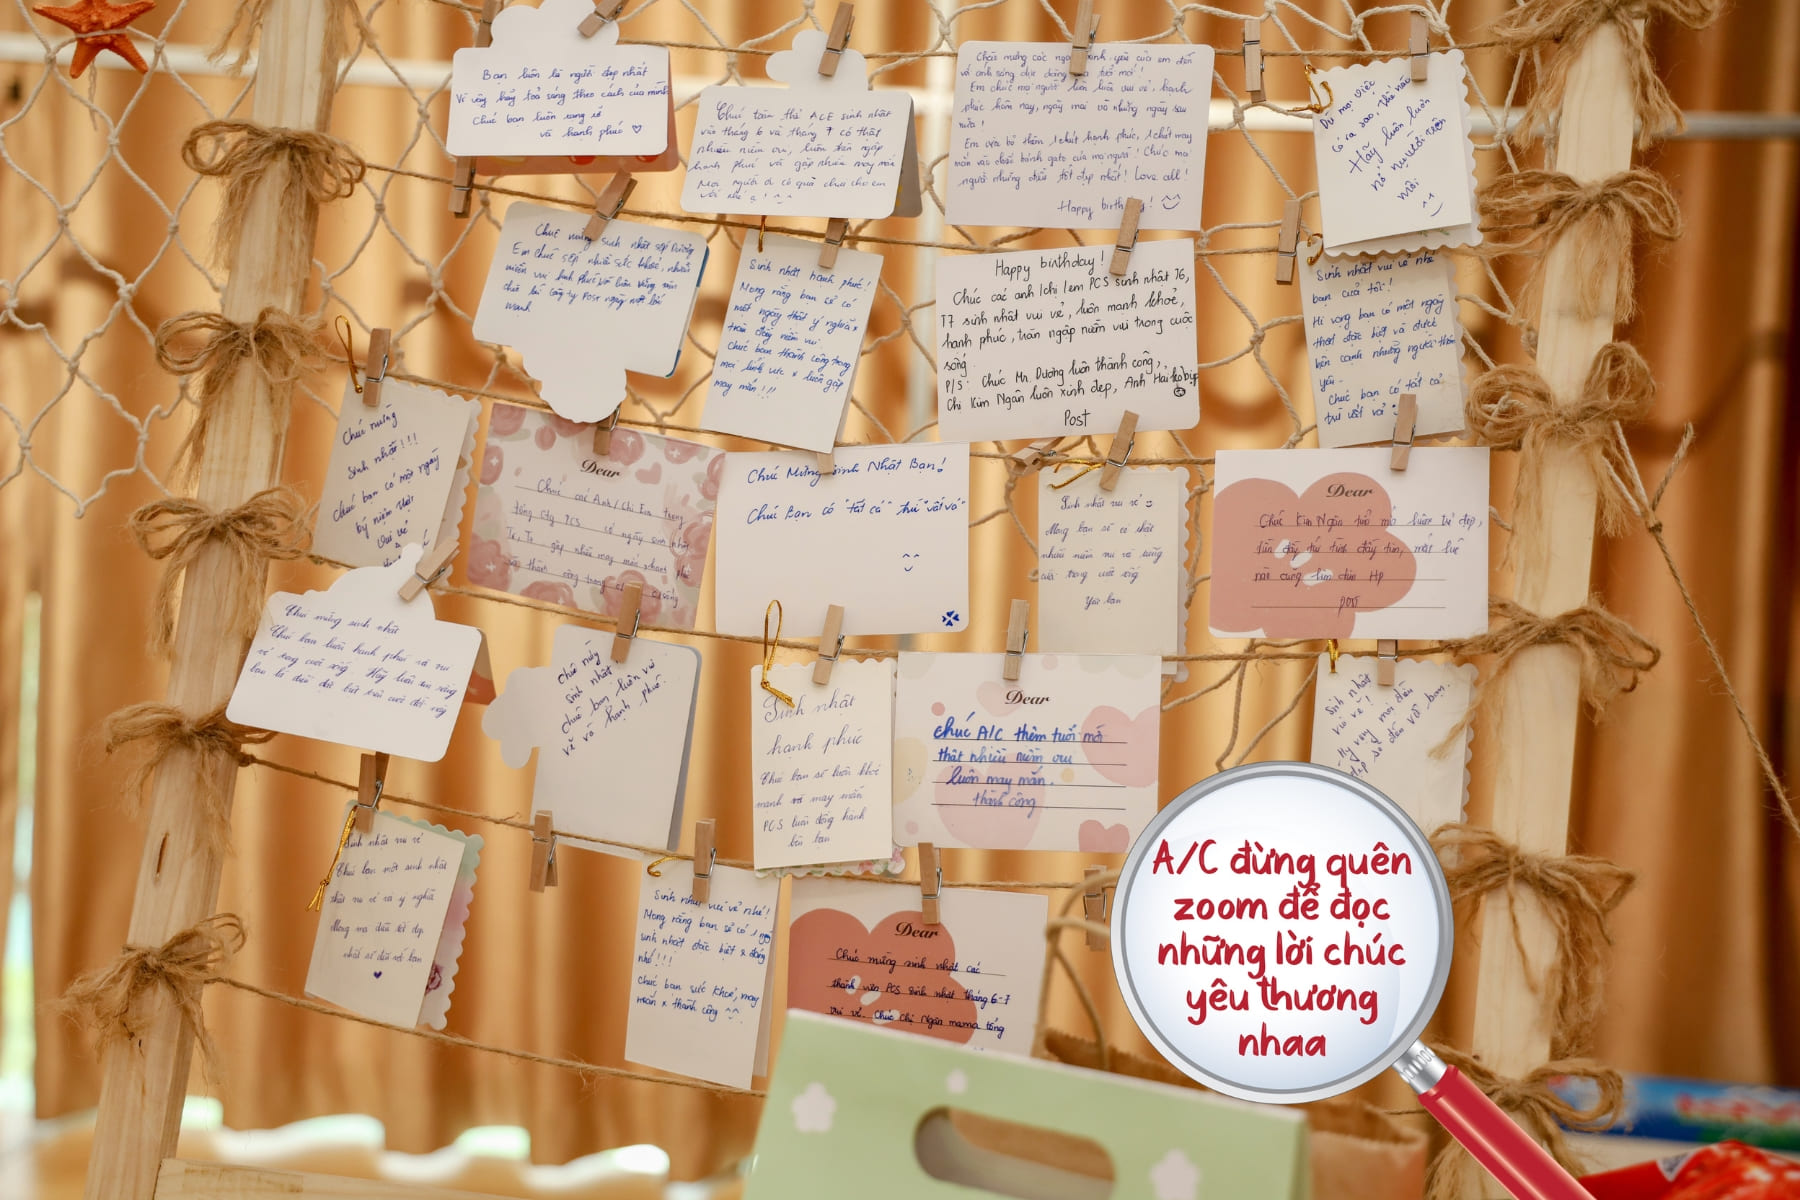 Bạn luôn là người đẹp nhất
Vì vậy hãy toả sáng theo cách của mình
Chúc bạn luôn rạng rỡ
và hạnh phúc ♡
Chúc toàn thể ACE sinh nhật
vào tháng 6 và tháng 7 có thật
nhiều niềm vui, luôn tràn ngập
hạnh phúc và gặp nhiều may mắn
Mọi người ơi có quà chưa cho em
với nhé ạ! ^_^
Chào mừng các ngày sinh yêu của em đến
với ánh sáng của tuổi mới!
Em chúc mọi người luôn luôn vui vẻ, hạnh
phúc hôm nay, ngày mai và những ngày sau
nữa!
Em vừa bỏ thêm 1 chút hạnh phúc, 1 chút may
mắn vào chiếc bánh gato của mọi người! Chúc mọi
người những điều tốt đẹp nhất! Love all!
Happy birthday!
Dù mọi việc
có ra sao, thế nào
Hãy luôn luôn
nở nụ cười trên
môi ^^
Chúc mừng sinh nhật sếp Dương
Em chúc sếp nhiều sức khoẻ, nhiều
niềm vui hạnh phúc và luôn vững
công ty Post ngày một lớn
mạnh
Sinh nhật hạnh phúc!
Mong rằng bạn sẽ có
một ngày thật ý nghĩa &
tràn đầy niềm vui.
Chúc bạn thành công trong
mọi lĩnh vực & luôn gặp
may mắn!!!
Happy birthday!
Chúc các anh/chị/em PCS sinh nhật T6,
T7 sinh nhật vui vẻ, luôn mạnh khỏe,
hạnh phúc, tràn ngập niềm vui trong cuộc
sống.
P/S: Chúc Mr. Dương luôn thành công,
Chị Kim Ngân luôn xinh đẹp, Anh Hai
Post
Sinh nhật vui vẻ nhé
bạn của tôi!
Hi vọng bạn có một ngày
thật đặc biệt và được
bên cạnh những người thân
yêu.
Chúc bạn có tất cả
trừ vất vả
Chúc mừng
Sinh nhật!!!
Chúc bạn có một ngày
kỷ niệm thật
vui vẻ
Dear
Chúc các Anh/Chị Em trong
tổng cty PCS có ngày sinh nhật
T6, T7 gặp nhiều may mắn hạnh phúc
thành công trong cuộc sống
Chúc Mừng Sinh Nhật Bạn!
Chúc Bạn có "tất cả" trừ "vất vả"
Sinh nhật vui vẻ
Mong bạn sẽ có thật
nhiều niềm vui và tiếng
cười trong cuộc sống
Yêu bạn
Dear
Chúc Kim Ngân tuổi mới luôn trẻ đẹp,
tiền đầy túi tình đầy tim, mọi lúc
nào cũng HP
Post
Chúc mừng sinh nhật
Chúc bạn luôn hạnh phúc và vui
vẻ trong cuộc sống. Hãy luôn tin rằng
bạn là điều đặc biệt trên cuộc đời này
Chúc mừng
sinh nhật
chúc bạn luôn vui
vẻ và hạnh phúc.
Sinh nhật
hạnh phúc
Chúc bạn sẽ luôn khỏe
mạnh và may mắn
PCS luôn đồng hành
bên bạn
Dear
Chúc A/C thêm tuổi mới
thật nhiều niềm vui
luôn may mắn,
thành công
Sinh nhật
vui vẻ!
Hy vọng mọi điều
đẹp sẽ đến với bạn.
Sinh nhật vui vẻ
Chúc bạn một sinh nhật
thật vui vẻ và ý nghĩa
Mong mọi điều tốt đẹp
nhất sẽ đến với bạn
♥
Sinh nhật vui vẻ nhé!
Mong rằng bạn sẽ có 1 ngày
sinh nhật đặc biệt & đáng
nhớ!!!
Chúc bạn sức khoẻ, may
mắn & thành công ^^.
Dear
Chúc mừng sinh nhật các
thành viên PCS sinh nhật tháng 6-7
vui vẻ. Chúc Chị Ngân mama tổng
A/C đừng quên
zoom để đọc
những lời chúc
yêu thương
nhaa